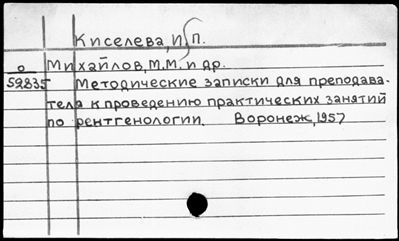 Киселева, И.П.
о Михайлов, М.М. и др.
59835 Методические записки для преподава-
теля к проведению практических занятий
по рентгенологии. Воронеж, 1957